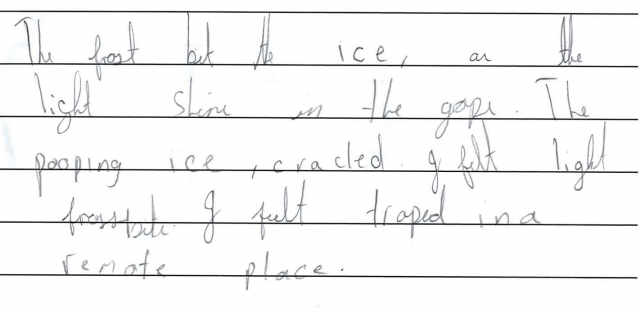 The frost bit the ice, as the
light shine in the gaps. The
pooping ice, cracled. I felt light
frosstbite. I fuelt traped in a
remote place.